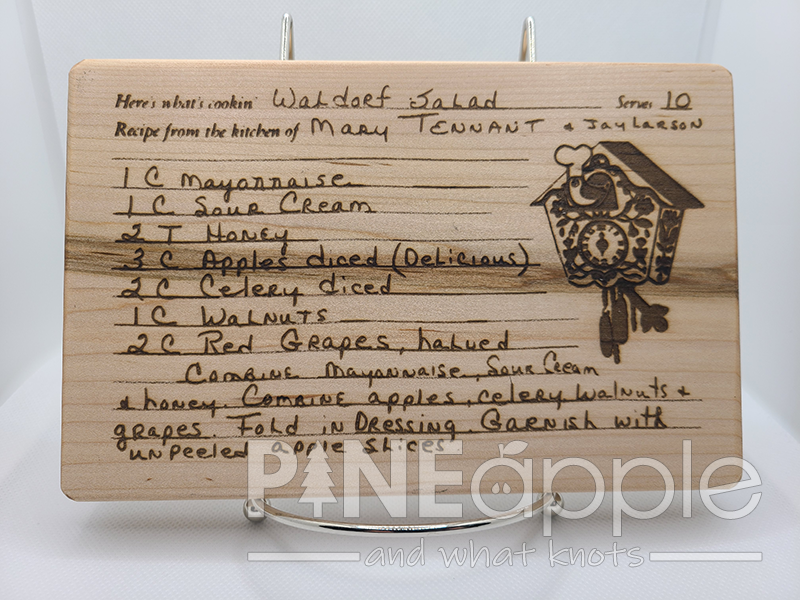 Here's what's cookin' Waldorf Salad Serves 10
Recipe from the kitchen of Mary Tennant & Jay Larson
1 C Mayonnaise
1 C Sour Cream
2 T Honey
3 C Apples diced (Delicious)
2 C Celery diced
1 C Walnuts
2 C Red Grapes, halved
Combine Mayonnaise, Sour Cream
& honey. Combine apples, celery walnuts &
grapes. Fold in Dressing. Garnish with
unpeeled apple slices
PINEápple
and what knots